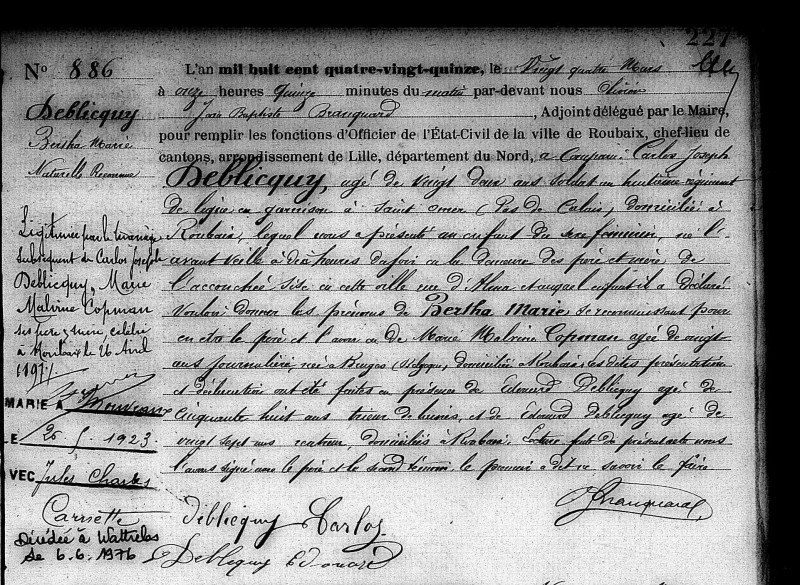 227
Nº 886
Deblicquy
Bertha Marie
Naturelle Reconnue
L'an mil huit cent quatre-vingt-quinze, le vingt quatre Mars
à onze heures quinze minutes du matin par-devant nous
Jean Baptiste Branquard, Adjoint délégué par le Maire,
pour remplir les fonctions d'Officier de l'État-Civil de la ville de Roubaix, chef-lieu de
cantons, arrondissement de Lille, département du Nord, a comparu Carlos Joseph
Deblicquy, agé de vingt deux ans soldat au huitième régiment
de ligne en garnison à Saint Omer (Pas de Calais) domicilié à
Roubaix, lequel nous a présenté un enfant du sexe féminin, né l'
avant veille à dix heures du soir en la demeure des père et mère de
l'accouchée sise en cette ville rue d' auquel enfant il a déclaré
vouloir donner les prénoms de Bertha Marie se reconnaissant pour
en être le père et l'avoir eu de Marie Malvina Copman agée de vingt
ans journalière née à Bruges (Belgique) domiciliée à Roubaix, Les dites présentation
et déclaration ont été faites en présence de Edouard Deblicquy agé de
cinquante huit ans et de Edouard deblicquy agé de
vingt sept ans domiciliés à Roubaix. Lecture faite du présent acte nous
l'avons signé avec le père et le second témoin, le premier a dit ne savoir le faire
Légitimée par le mariage
subséquent de Carlos Joseph
Deblicquy, & Marie
Malvina Copman
ses père & mère, célébré
à Roubaix le 26 Avril
1897
MARIE A Mouveaux
LE 26 5 1923
AVEC Jules Charles
Carrette
Décédée à Wattrelos
le 6.6.1976
Deblicquy Carlos
Deblicquy Edouard
Branquard